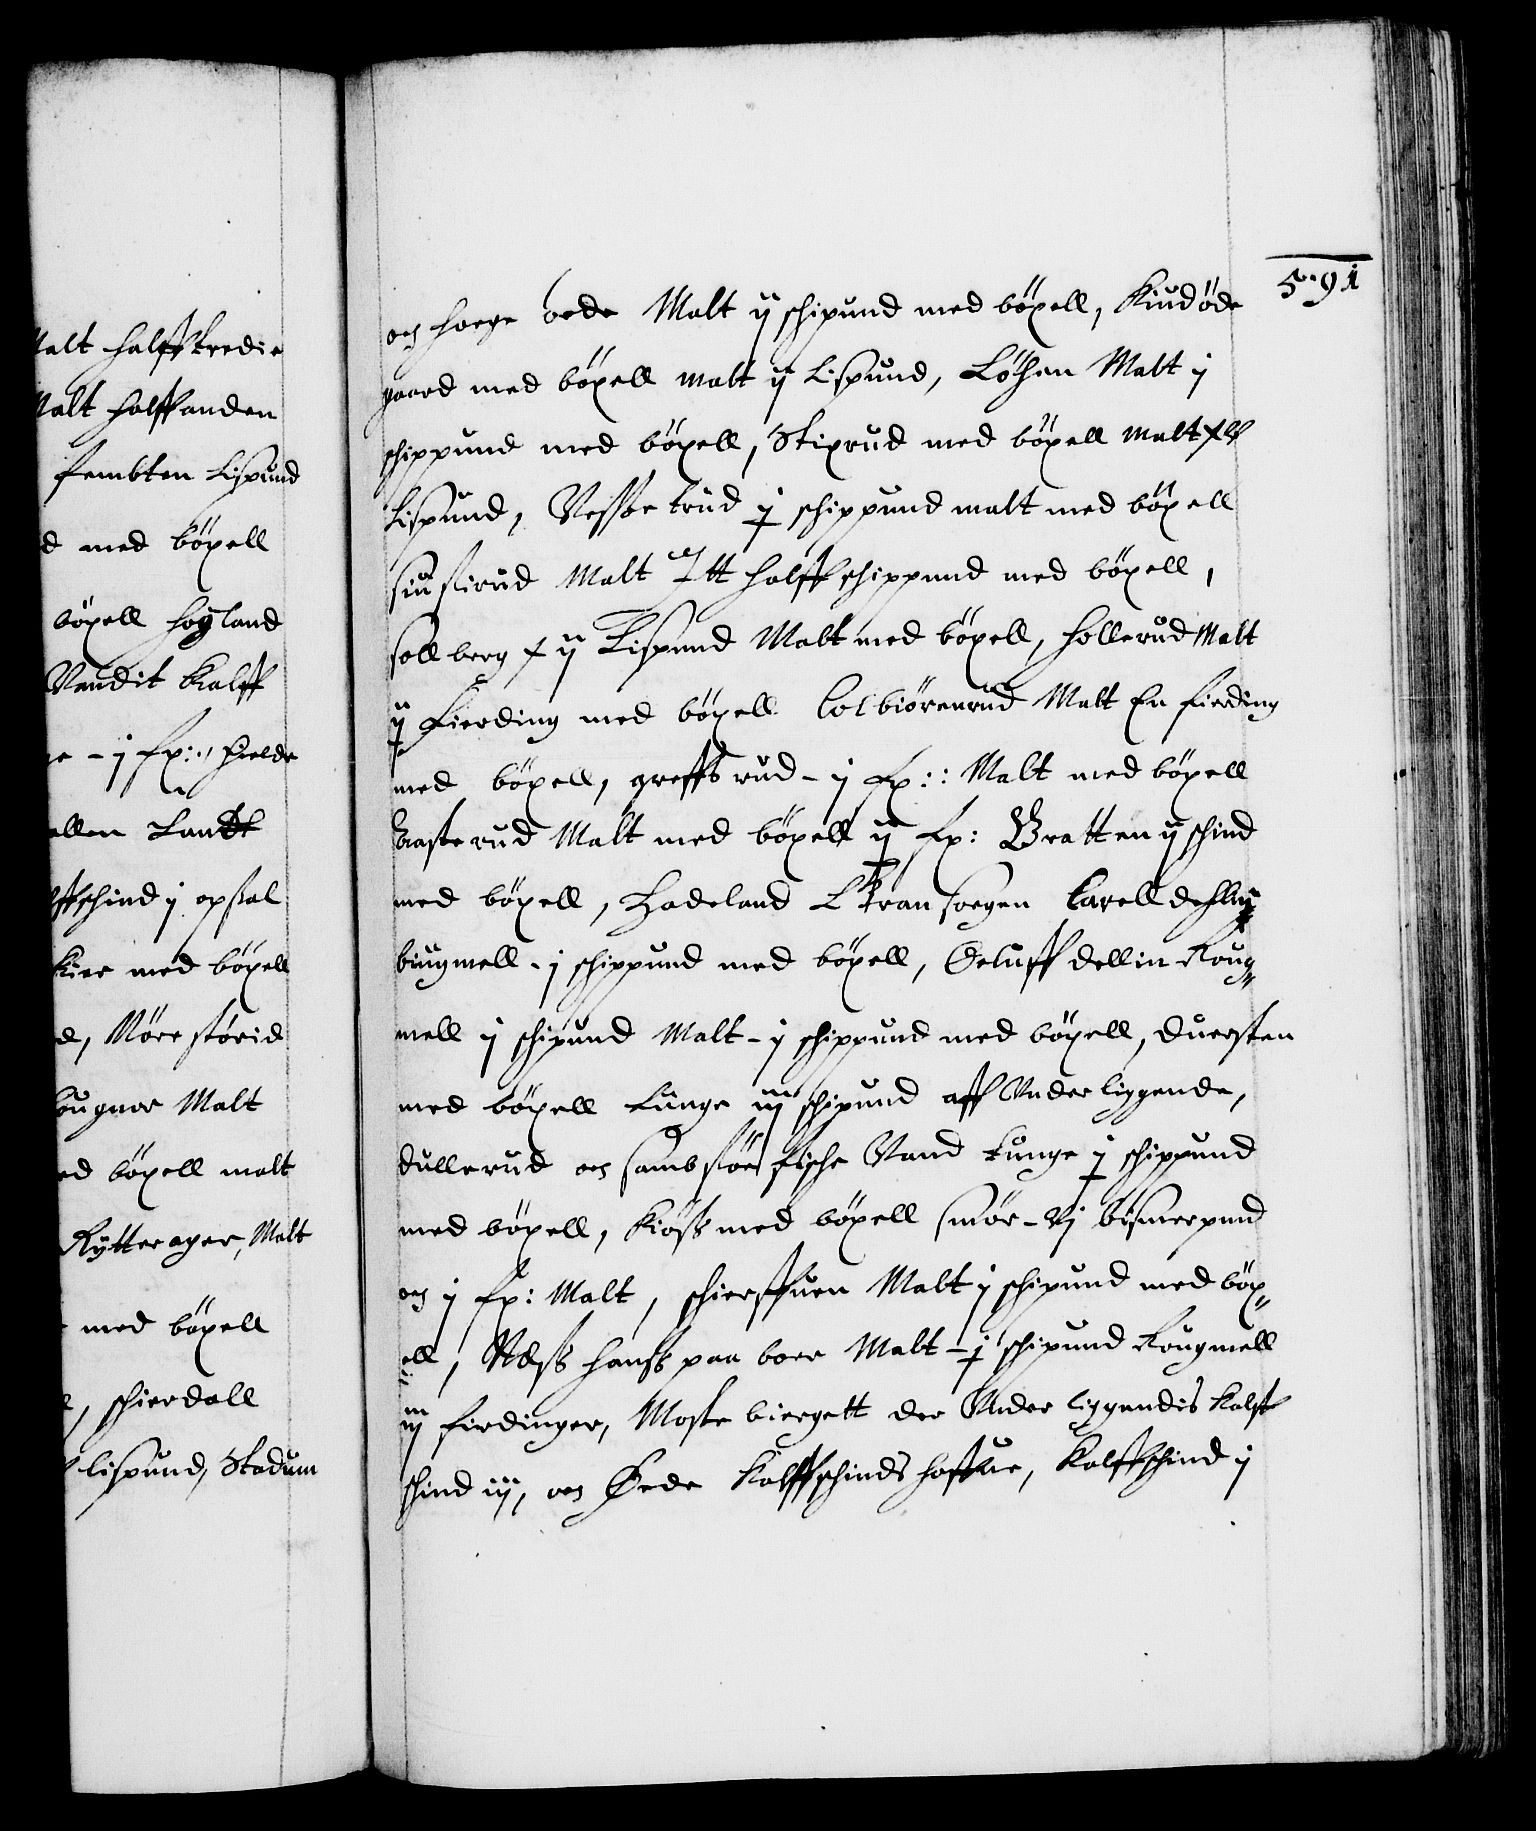 Malt halfftredie
Malt halffanden
fembten Lispund
d med böxell
böxell hogland
Vandit Kalff
- j sx: fielde
ellen Landt
schind j opsal
Kier med böxell
d, Mörr störid
Malt
ed böxell malt
Rytterager, Malt
med böxell
schierdall
lispund, Stadum
591
och hoege øde Malt ij schipund med böxell, Kiudöde
gaard med böxell malt ij Lispund, Löhen Malt j
schippund med böxell, Stixrud med böxell Malt
Lispund, Vessetrud j schippund malt med böxell
siustirud Malt Itt halff schippund med böxell,
sollberg x ij Lispund Malt med böxell, hollerud Malt
ij Fierding med böxell Colbiörnrud Malt En fierding
med böxell, greffsrud - ij sx: Malt med böxell
Aasterud Malt med böxell ij sx: Bratten ij schind
med böxell, Hadeland
biugmell - j schippund med böxell, Oeluff dellin Roug
mell ij schipund Malt - j schippund med böxell, duersten
med böxell tunge iij schipund aff Vnderliggende,
dullerud och sambstör fische Vand tunge j schippund
med böxell, Kiöss med böxell smör - vj bismerpund
och j sx: Malt, schierffuen Malt j schipund med böx
ell, Næss hanss paa boer Malt - j schipund Rougmell
iij firdinger, Moste biergett der Vnder liggendis Kalff
schind iij, och Øde Kalffschinds hoffue, Kalffschind j